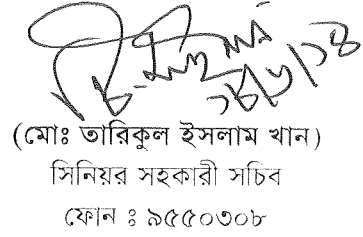 (মোঃ তারিকুল ইসলাম খান)
সিনিয়র সহকারী সচিব
ফোন ঃ ৯৫৫০৩০৮